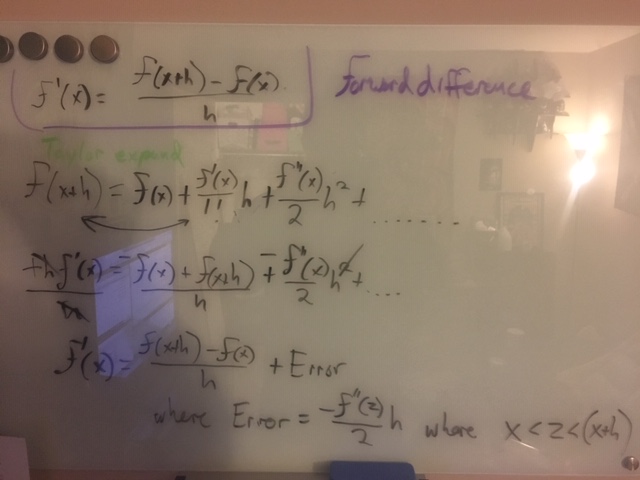 f'(x) = f(x+h) - f(x) / h Forward difference
Taylor expand
f(x+h) = f(x) + f'(x)/1! h + f''(x)/2 h² + .......
-h f'(x)/h = -f(x) + f(x+h) / h ∓ f''(x)/2 h² + ....
f'(x) = f(x+h) - f(x) / h + Error
where Error = -f''(z)/2 h where x < z < (x+h)